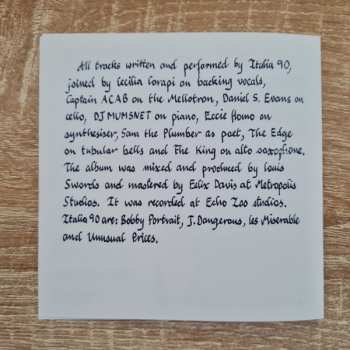 All tracks written and performed by Italia 90,
joined by Cecilia Corapi on backing vocals,
Captain ACAB on the Mellotron, Daniel S. Evans on
cello, DJ MUMSNET on piano, Eccie Homo on
synthesiser, Sam the Plumber as poet, The Edge
on tubular bells and The King on alto saxophone.
The album was mixed and produced by Louis
Swords and mastered by Felix Davis at Metropolis
Studios. It was recorded at Echo Zoo studios.
Italia 90 are: Bobby Portrait, J. Dangerous, Les Miserable
and Unusual Prices.